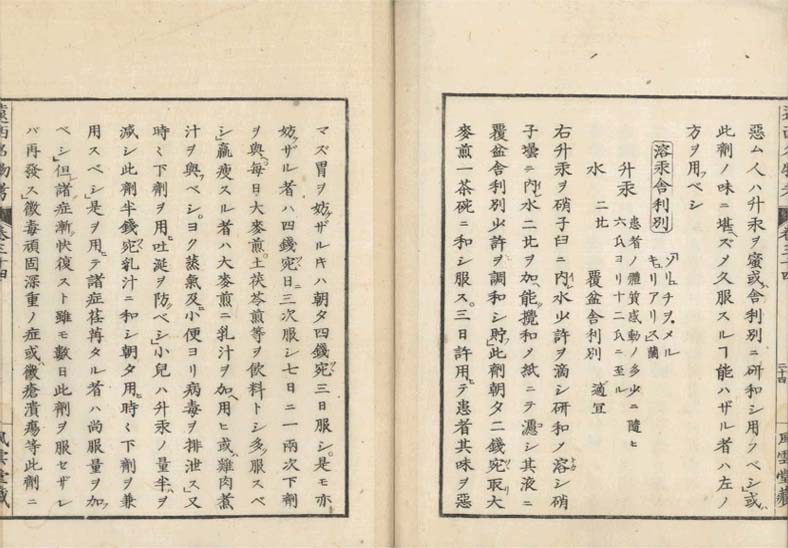 悪ム人ハ升汞ヲ蜜或ハ舎利別ニ研和シ用フベシ」或ハ
此劑ノ味ニ堪ズメ久服スルヿ能ハザル者ハ左ノ
方ヲ用ベシ
溶汞舎利別
ソリュチヲ、メル
キュリアリス蘭
升汞
患者ノ體質感動ノ多少ニ隨ヒ
六氏ヨリ十二氏ニ至ル
水 二比 覆盆舎利別 適冝
右升汞ヲ硝子臼ニ内レ水少許ヲ滴シ研和メ溶シ硝
子壜ニ内レ水二比ヲ加ヘ能攪和メ紙ニテ濾シ其液ニ
覆盆舎利別少許ヲ調和シ貯フ」此劑朝夕二錢宛取大
麥煎一茶碗ニ和シ服ス。三日許用テ患者其味ヲ惡
マズ胃ヲ妨ザルキハ朝夕四錢宛三日服シ。是モ亦
妨ザル者ハ四錢宛日三次服シ七日ニ一兩次下劑
ヲ與ヘ每日大麥煎、土茯苓煎等ヲ飲料トシ多ク服スベ
シ」羸瘦スル者ハ大麥煎ニ乳汁ヲ加ヘ用ヒ或ハ雞肉煮
汁ヲ與フベシ。ヨク蒸氣及ヒ小便ヨリ病毒ヲ排泄ス」又
時々下劑ヲ用ヒ吐涎ヲ防グベシ」小兒ハ升汞ノ量半ヲ
減シ此劑半錢宛乳汁ニ和シ朝夕用ヒ時々下劑ヲ兼
用スベシ」是ヲ用テ諸症荏苒タル者ハ尚服量ヲ加フ
ベシ」但シ諸症漸快復スト雖モ數日此劑ヲ服セザレ
バ再發ス」黴毒頑固深重ノ症或ハ黴瘡潰瘍等此劑ニ
遠西名物考
卷三十四
三十四
風雲堂藏